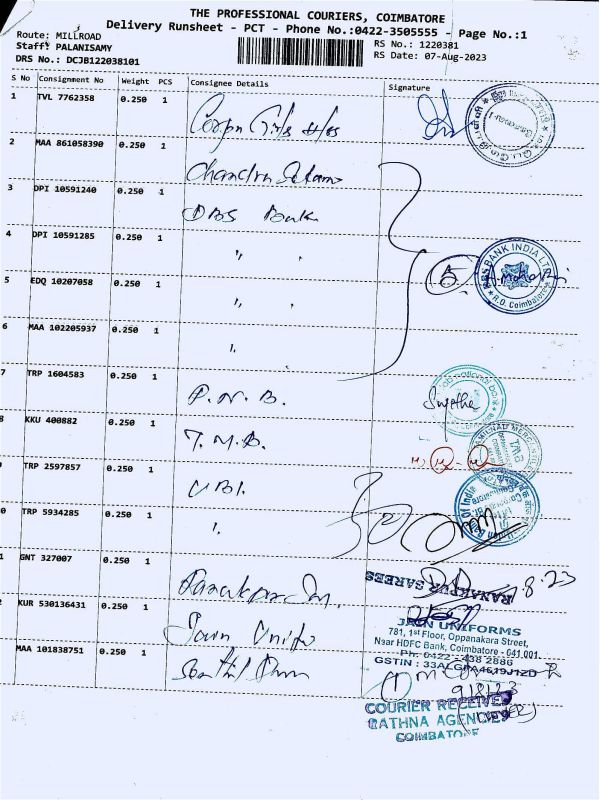 THE PROFESSIONAL COURIERS, COIMBATORE
Delivery Runsheet - PCT - Phone No.:0422-3505555 - Page No.:1
Route: MILLROAD
Staff: PALANISAMY
DRS No.: DCJB122038101
RS No.: 1220381
RS Date: 07-Aug-2023
S No Consignment No Weight PCS Consignee Details Signature
1 TVL 7762358 0.250 1
2 MAA 861058390 0.250 1
3 DPI 10591240 0.250 1 DBS Bank
4 DPI 10591285 0.250 1 ,,
5 EDQ 10207058 0.250 1 ,,
6 MAA 102205937 0.250 1
DBS BANK INDIA LTD
R.O. Coimbatore
7 TRP 1604583 0.250 1 P.N.B. Sujetha
8 KKU 400882 0.250 1 T.M.B.
TMB
TRP 2597857 0.250 1 UBI.
0 TRP 5934285 0.250 1
1 GNT 327007 0.250 1
RANAKPUR SAREES
8.23
KUR 530136431 0.250 1
JAIN UNIFORMS
781, 1st Floor, Oppanakara Street,
Near HDFC Bank, Coimbatore - 641 001.
Ph: 0422 - 438 2886
MAA 101838751 0.250 1
COURIER RECEIVED
RATHNA AGENCIES
COIMBATORE